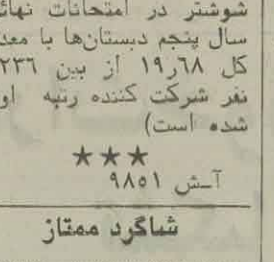 شوشتر در امتحانات نهائ
سال پنجم دبستان‌ها با معد
کل ۱۹٫۶۸ از بین ۲۳۶
نفر شرکت کننده رتبه او
شده است)
★★★
آ-ش ۹۸۵۱
شاگرد ممتاز